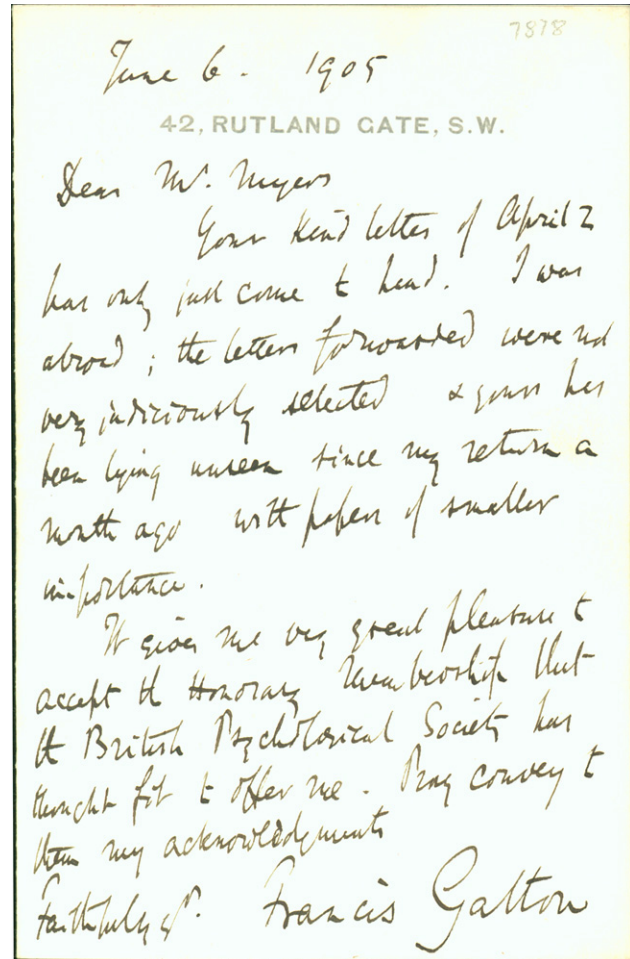 7878
June 6. 1905
42, RUTLAND GATE, S.W.
Dear Mr. Myers
Your kind letter of April 2
has only just come to hand. I was
abroad; the letters forwarded were not
very judiciously selected & yours has
been lying unseen since my return a
month ago with papers of smaller
importance.
It gives me very great pleasure to
accept the Honorary Membership that
the British Psychological Society has
thought fit to offer me. Pray convey to
them my acknowledgments
Faithfully yrs. Francis Galton